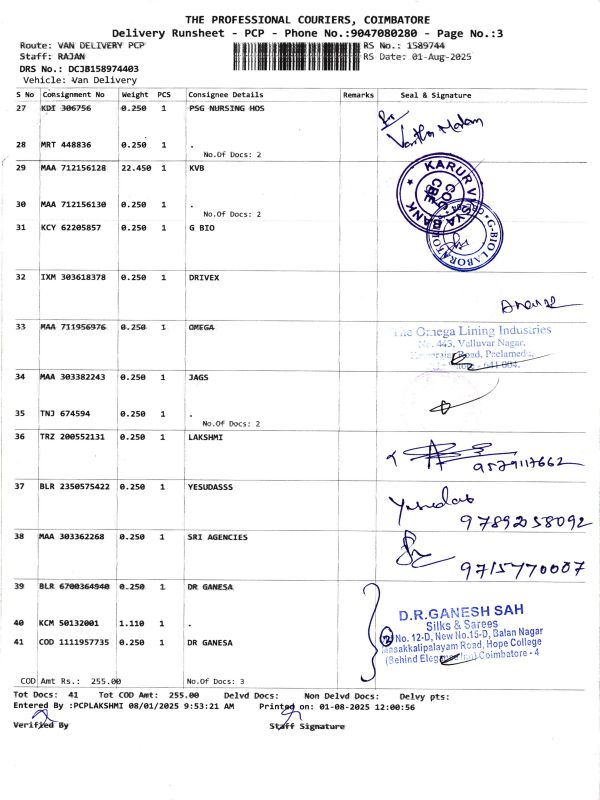 THE PROFESSIONAL COURIERS, COIMBATORE
Delivery Runsheet - PCP - Phone No.:9047080280 - Page No.:3
Route: VAN DELIVERY PCP RS No.: 1589744
Staff: RAJAN RS Date: 01-Aug-2025
DRS No.: DCJB158974403
Vehicle: Van Delivery
S No Consignment No Weight PCS Consignee Details Remarks Seal & Signature
27 KDI 306756 0.250 1 PSG NURSING HOS
28 MRT 448836 0.250 1 .
No.Of Docs: 2
29 MAA 712156128 22.450 1 KVB
KARUR VYSYA BANK
CBE
30 MAA 712156130 0.250 1 .
No.Of Docs: 2
31 KCY 62205857 0.250 1 G BIO
G-BIO LABORATORIES
32 IXM 303618378 0.250 1 DRIVEX
33 MAA 711956976 0.250 1 OMEGA
The Omega Lining Industries
No. 443, Valluvar Nagar,
Road, Peelamedu,
641 004.
34 MAA 303382243 0.250 1 JAGS
35 TNJ 674594 0.250 1 .
No.Of Docs: 2
36 TRZ 200552131 0.250 1 LAKSHMI
9529117662
37 BLR 2350575422 0.250 1 YESUDASSS
Yesudas
9789258092
38 MAA 303362268 0.250 1 SRI AGENCIES
9715770007
39 BLR 6700364940 0.250 1 DR GANESA
D.R.GANESH SAH
Silks & Sarees
40 KCM 50132001 1.110 1 .
No. 12-D, New No.15-D, Balan Nagar
41 COD 1111957735 0.250 1 DR GANESA
Masakkalipalayam Road, Hope College
(Behind Elegance Inn) Coimbatore - 4
COD Amt Rs.: 255.00 No.Of Docs: 3
Tot Docs: 41 Tot COD Amt: 255.00 Delvd Docs: Non Delvd Docs: Delvy pts:
Entered By :PCPLAKSHMI 08/01/2025 9:53:21 AM Printed on: 01-08-2025 12:00:56
Verified By Staff Signature